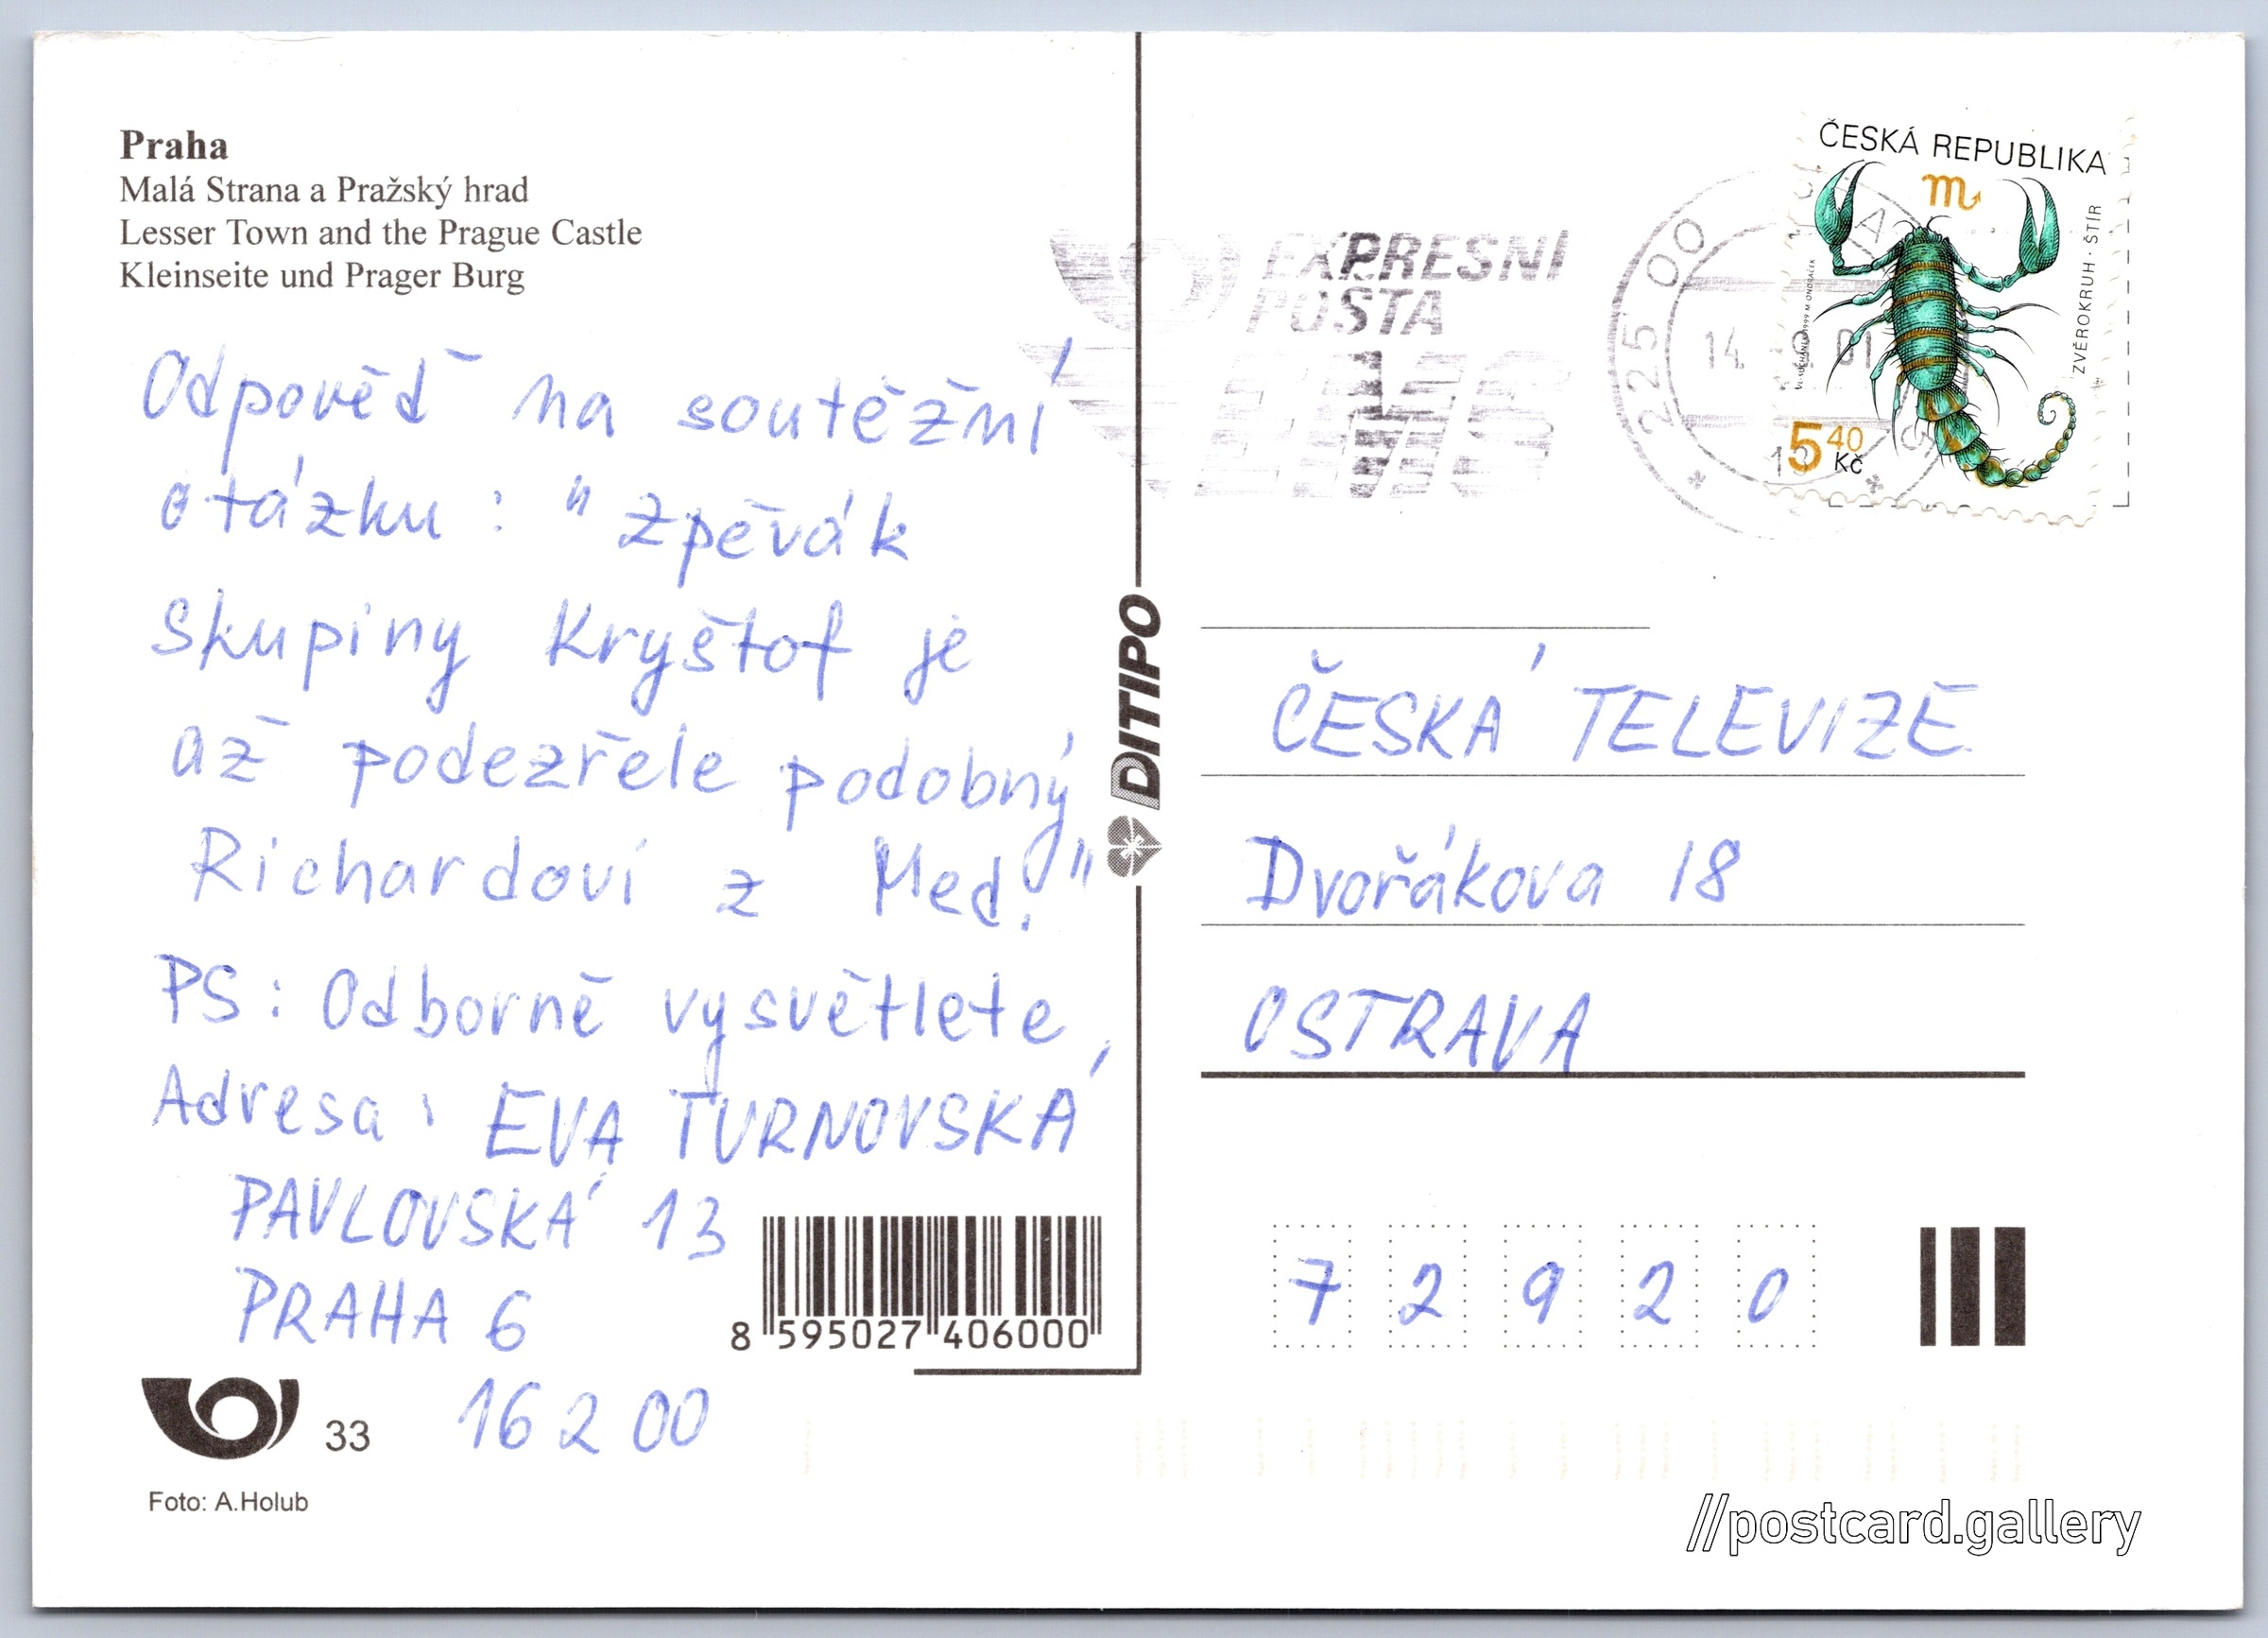 Praha
Malá Strana a Pražský hrad
Lesser Town and the Prague Castle
Kleinseite und Prager Burg
Odpověď na soutěžní
otázku : "Zpěvák
skupiny Kryštof je
až podezřele podobný
Richardovi z Med!"
PS: Odborně vysvětlete,
Adresa: EVA TURNOVSKÁ
PAVLOVSKÁ 13
PRAHA 6
162 00
8 595027 406000
33
Foto: A.Holub
DITIPO
EXPRESNÍ
POŠTA
EMS
225 00
14. 01
ČESKÁ REPUBLIKA
ZVĚROKRUH · ŠTÍR
5 40
Kč
ČESKÁ TELEVIZE
Dvořákova 18
OSTRAVA
7 2 9 2 0
//postcard.gallery